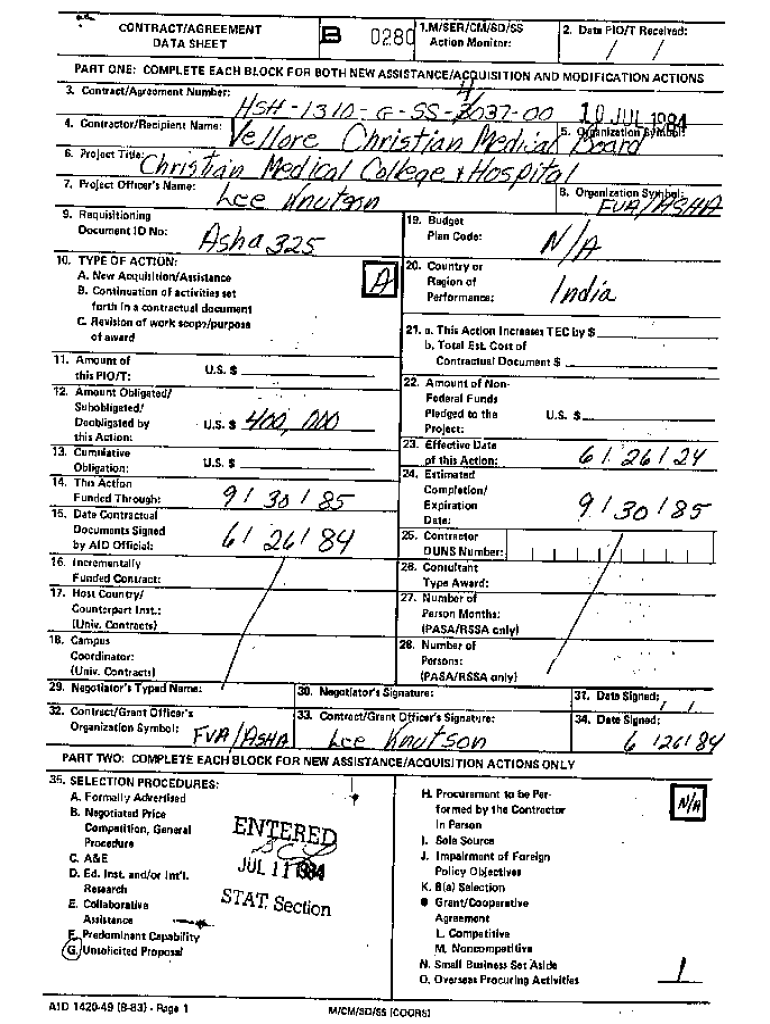 CONTRACT/AGREEMENT
DATA SHEET
B 0280
1. M/SER/CM/SD/SS
Action Monitor:
2. Date PIO/T Received:
/ /
PART ONE: COMPLETE EACH BLOCK FOR BOTH NEW ASSISTANCE/ACQUISITION AND MODIFICATION ACTIONS
3. Contract/Agreement Number:
4
HSH-1310-G-SS-3037-00
10 JUL 1984
4. Contractor/Recipient Name:
Vellore Christian Medical Board
5. Organization Symbol:
6. Project Title:
Christian Medical College & Hospital
7. Project Officer's Name:
Lee Knutson
8. Organization Symbol:
FVA/ASHA
9. Requisitioning
Document ID No:
Asha 325
19. Budget
Plan Code:
N/A
10. TYPE OF ACTION:
A. New Acquisition/Assistance
B. Continuation of activities set
forth in a contractual document
C. Revision of work scope/purpose
of award
A
20. Country or
Region of
Performance:
India
21. a. This Action Increases TEC by $
b. Total Est. Cost of
Contractual Document $
11. Amount of
this PIO/T:
U.S. $
12. Amount Obligated/
Subobligated/
Deobligated by
this Action:
U.S. $ 400,000
22. Amount of Non-
Federal Funds
Pledged to the
Project:
U.S. $
13. Cumulative
Obligation:
U.S. $
23. Effective Date
of this Action:
6/26/24
14. This Action
Funded Through:
9/30/85
24. Estimated
Completion/
Expiration
Date:
9/30/85
15. Date Contractual
Documents Signed
by AID Official:
6/26/84
25. Contractor
DUNS Number:
16. Incrementally
Funded Contract:
26. Consultant
Type Award:
17. Host Country/
Counterpart Inst.:
(Univ. Contracts)
27. Number of
Person Months:
(PASA/RSSA only)
18. Campus
Coordinator:
(Univ. Contracts)
28. Number of
Persons:
(PASA/RSSA only)
29. Negotiator's Typed Name:
30. Negotiator's Signature:
31. Date Signed:
/ /
32. Contract/Grant Officer's
Organization Symbol:
FVA/ASHA
33. Contract/Grant Officer's Signature:
Lee Knutson
34. Date Signed:
6/26/84
PART TWO: COMPLETE EACH BLOCK FOR NEW ASSISTANCE/ACQUISITION ACTIONS ONLY
35. SELECTION PROCEDURES:
A. Formally Advertised
B. Negotiated Price
Competition, General
Procedure
C. A&E
D. Ed. Inst. and/or Int'l.
Research
E. Collaborative
Assistance
F. Predominant Capability
G. Unsolicited Proposal
ENTERED
JUL 11 1984
STAT. Section
H. Procurement to be Per-
formed by the Contractor
in Person
I. Sole Source
J. Impairment of Foreign
Policy Objectives
K. 8(a) Selection
Grant/Cooperative
Agreement
L. Competitive
M. Noncompetitive
N. Small Business Set Aside
O. Overseas Procuring Activities
N/A
1
AID 1420-49 (8-83) - Page 1
M/CM/SD/SS (COORS)